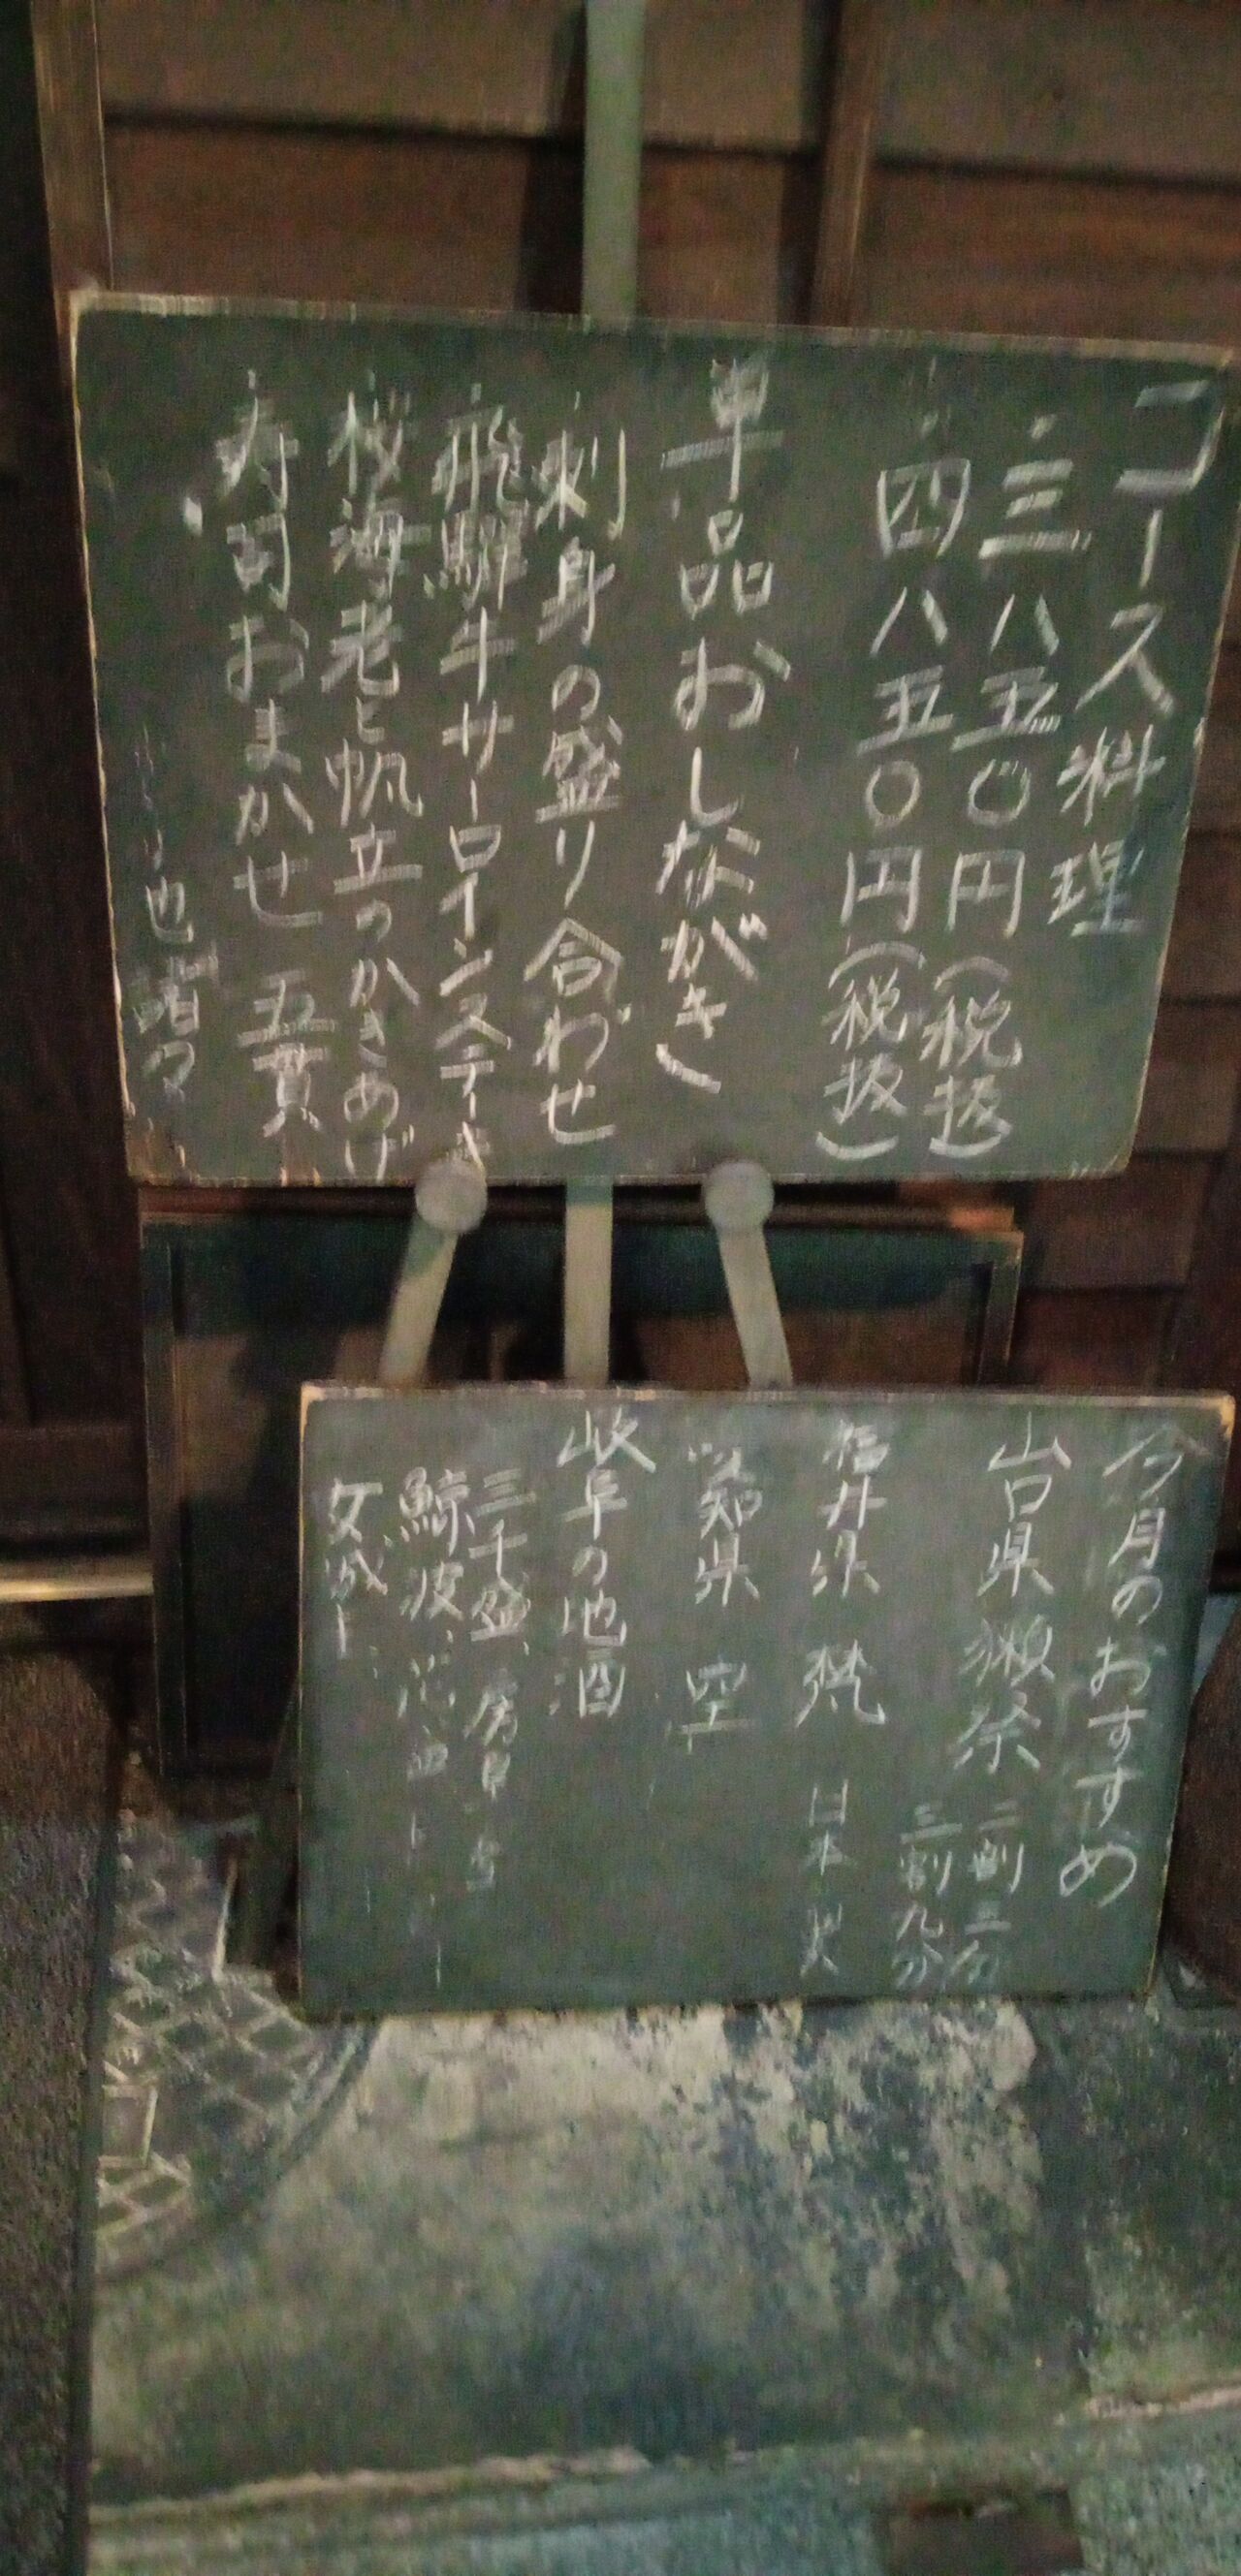 コース料理
・三八五〇円(税抜)
・四八五〇円(税抜)
単品おしながき
・刺身の盛り合わせ
・飛騨牛サーロインステーキ
・桜海老と帆立のかきあげ
・寿司おまかせ 五貫
也 諸々
今月のおすすめ
山口県 獺祭 二割三分
三割九分
福井県 梵 日本
愛知県 空
岐阜の地酒
三千盛、房島
鯨波、
女城主